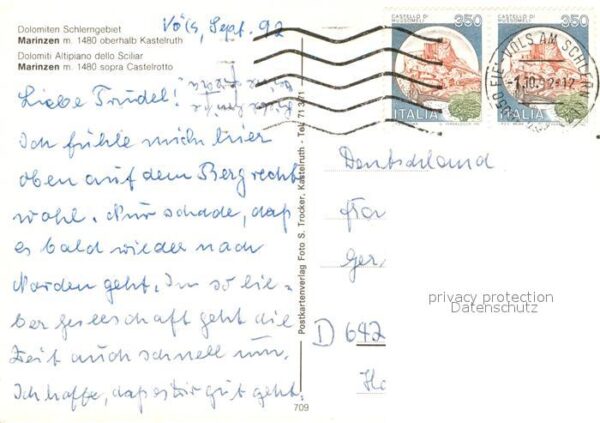 Dolomiten Schlerngebiet
Marinzen m. 1480 oberhalb Kastelruth
Dolomiti Altipiano dello Sciliar
Marinzen m. 1480 sopra Castelrotto
Völs, Sept. 92
Liebe Trudel!
Ich fühle mich hier
oben auf dem Berg recht
wohl. Nur schade, daß
es bald wieder nach
Norden geht. In so lie-
ber Gesellschaft geht die
Zeit auch schnell rum.
Ich hoffe, daß es Dir gut geht.
Postkartenverlag Foto S. Trocker, Kastelruth - Tel. 71371
709
CASTELLO DI MUSSOMELI 350
ITALIA
CASTELLO DI MUSSOMELI 350
ITALIA
VÖLS AM SCHLERN
-1.10.92-12
Deutschland
Frau
Ger
D 642
privacy protection
Datenschutz